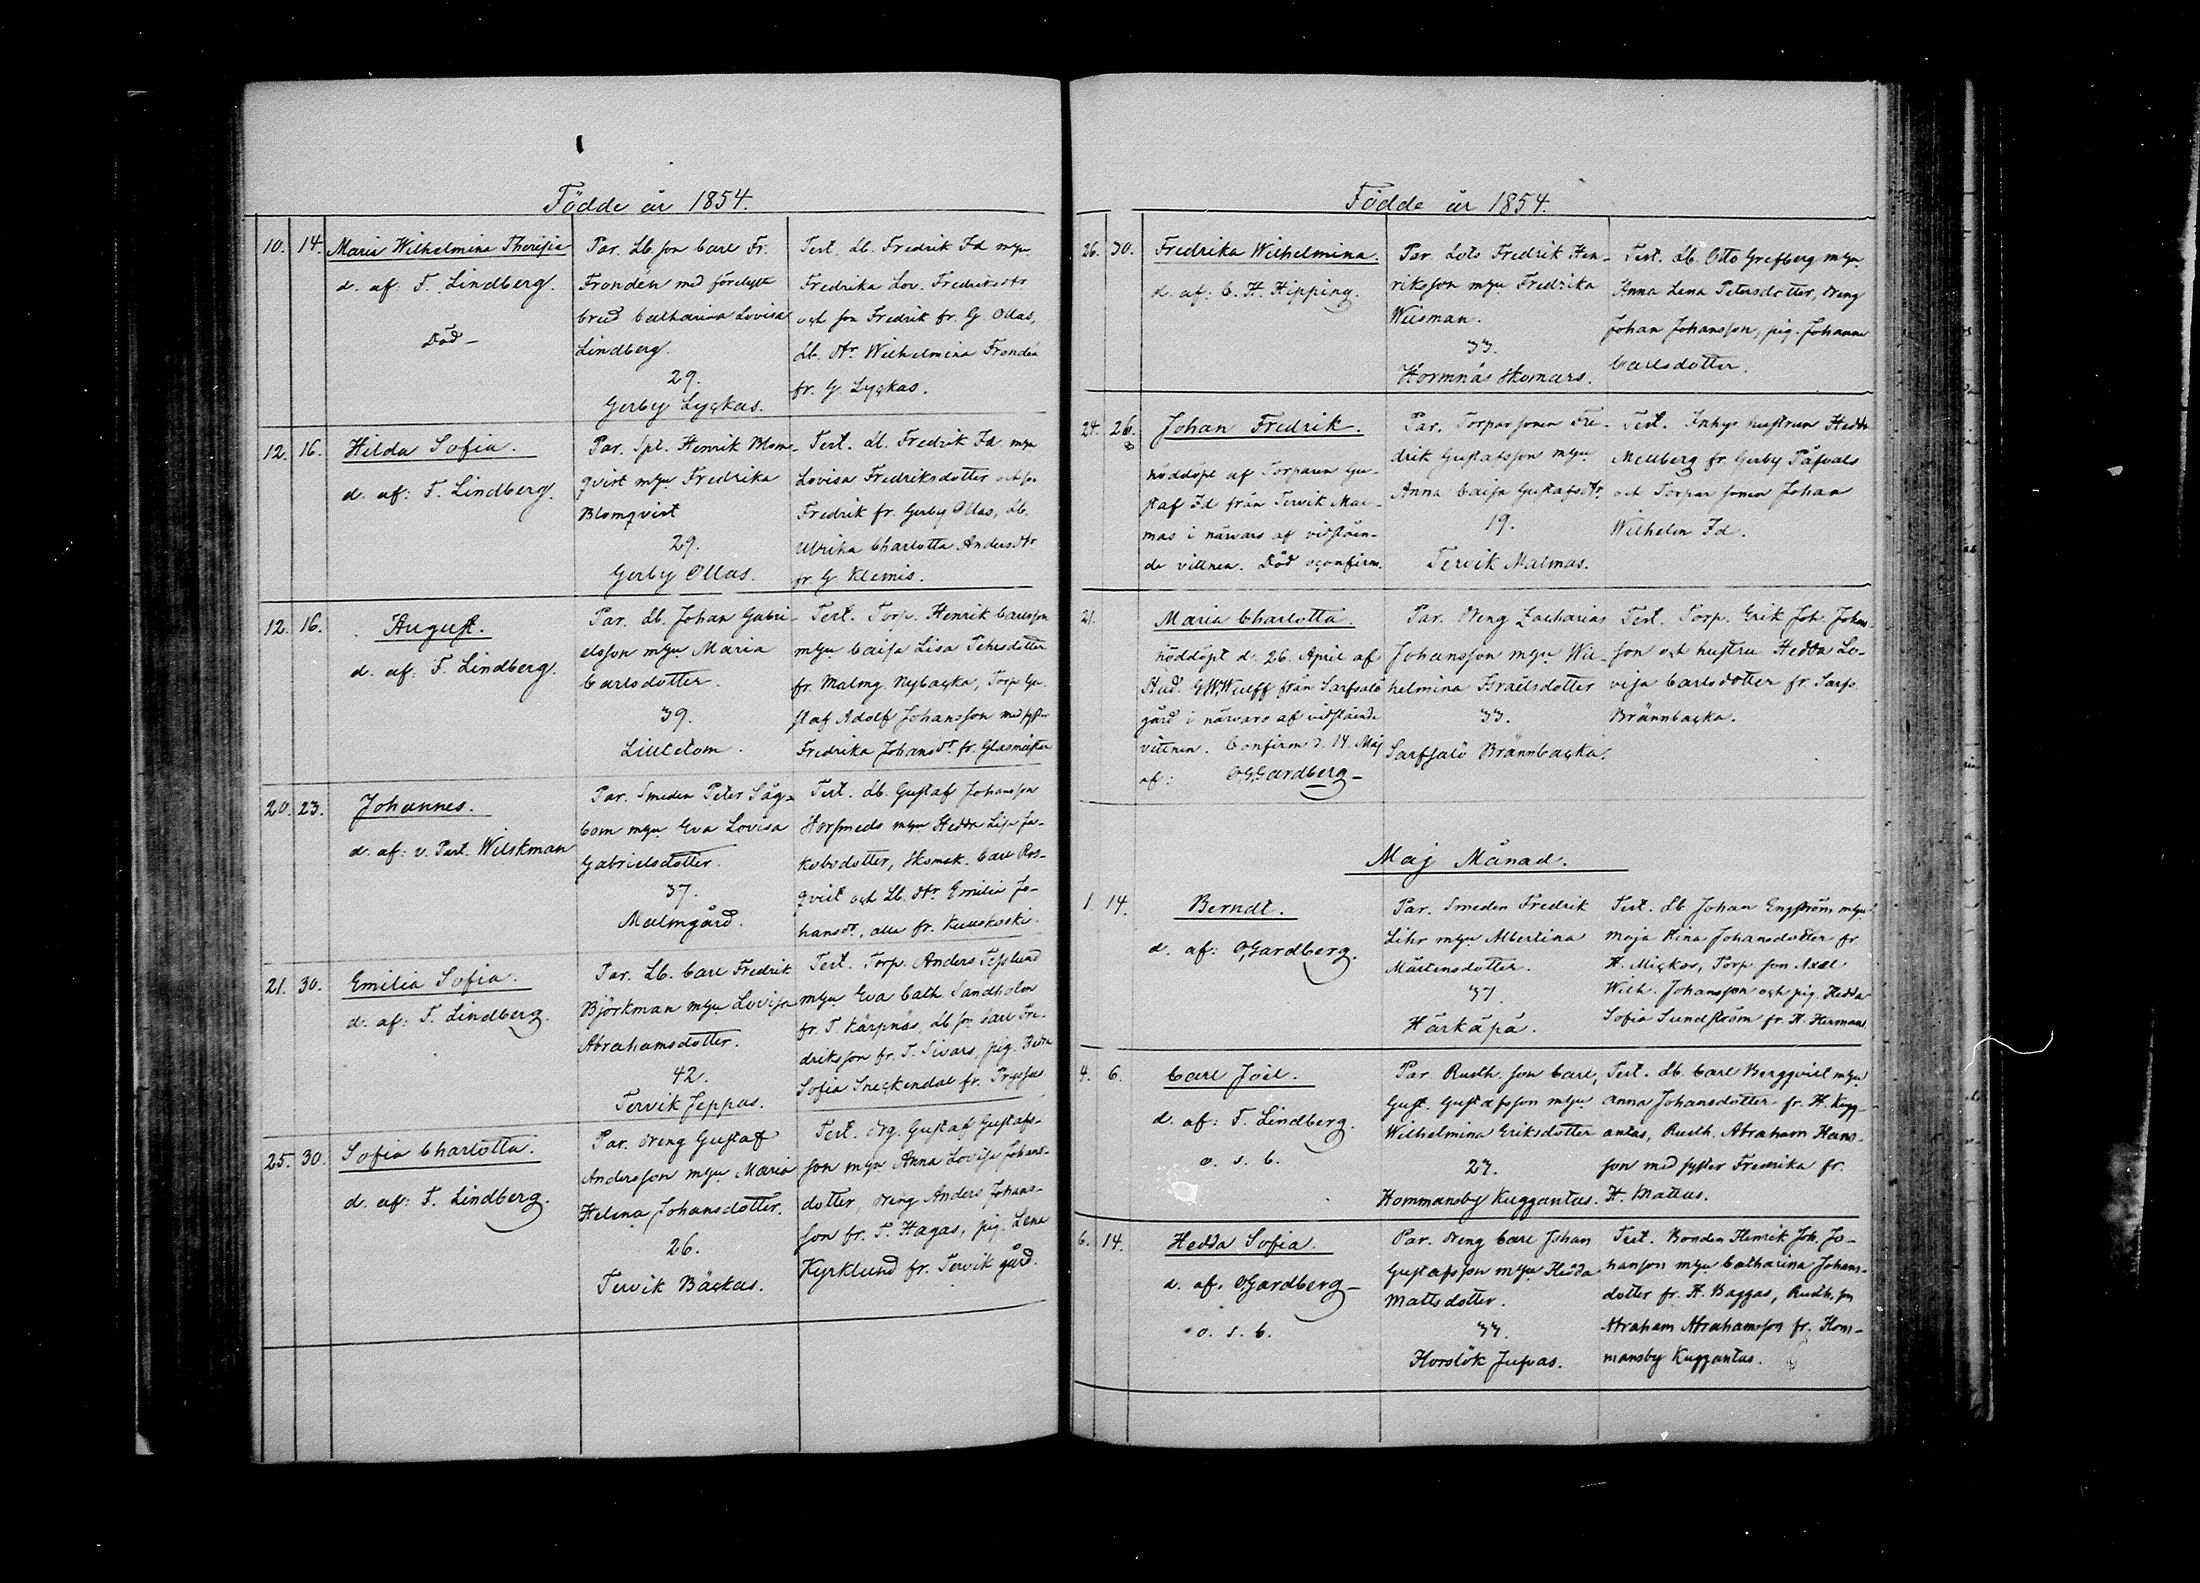 Födde år 1854.
10. 14. Maria Wilhelmina Theresia
d. af: F. Lindberg.
Död –
Par. Lb. son Carl Fr.
Fronden med förelofte
brud Catharina Lovisa
Lindberg.
29.
Gerby Lyckas.
Test. Lb. Fredrik Fd. mhu
Fredrika Lov. Fredriksdtr
och son Fredrik fr. G. Ollas,
Lb. dtr Wilhelmina Frondén
fr. G Lyckas.
12. 16. Hilda Sofia.
d. af: F. Lindberg.
Par. Spl. Henrik Blom-
qvist mhu Fredrika
Blomqvist
29.
Gerby Ollas.
Test. Lb. Fredrik Fd. mhu
Lovisa Fredriksdotter och son
Fredrik fr. Gerby Ollas, Lb.
Ulrika Charlotta Andersdtr
fr. G Klemis.
12. 16. August.
d. af: F. Lindberg.
Par. Lb. Johan Gabri-
elsson mhu Maria
Carlsdotter.
39.
Liiledom.
Test. Torp. Henrik Carlsson
mhu Caisa Lisa Pehrsdotter
fr. Malmg. Nybacka, Torp Gu-
staf Adolf Johansson med syster
Fredrika Johansdt. fr. Glasmäster
20. 23. Johannes.
d. af: v. Past. Wilskman
Par. Smeden Peter Såg-
bom mhu Eva Lovisa
Gabrielsdotter.
37.
Malmgård.
Test. Lb. Gustaf Johansson
Horsmeds mhu Hedda Lisa Ja-
kobsdotter, Skomak. Carl Ros-
qvist och Lb. dtr Emilia Jo-
hansdt, alla fr. Kuuskoski.
21. 30. Emilia Sofia.
d. af: F. Lindberg.
Par. Lb. Carl Fredrik
Björkman mhu Lovisa
Abrahamsdotter.
42.
Tervik Jeppas.
Test. Torp. Anders Tesslund
mhu Eva Cath. Sandholm
fr. T Kärpnäs, Lb. son Carl Fre-
driksson fr. T. Sivars, pig. Hedda
Sofia Sneckendal fr.
25. 30. Sofia Charlotta.
d. af: F. Lindberg.
Par. Dreng Gustaf
Andersson mhu Maria
Helena Johansdotter.
26.
Tervik Bäckas.
Test. Drg. Gustaf Gustafs-
son mhu Anna Lovisa Johans-
dotter, Dreng Anders Johans-
son fr. T. Hagas, pig. Lena
Kyrklund fr. Tervik gård.
Födde år 1854.
26. 30. Fredrika Wilhelmina.
d. af: C. H. Hipping.
Par. Lots Fredrik Hen-
riksson mhu Fredrika
Wiisman.
33.
Hormnäs Skomars.
Test. Lb. Otto Grefberg mhu
Anna Lena Petersdotter, Dreng
Johan Johansson, pig. Johanna
Carlsdotter.
24. 26. Johan Fredrik.
nöddöpt af Torparen Gu-
staf Fd från Tervik Mal-
mas i närvaro af vidståen-
de vittnen. Död oconfirm.
Par. Torparsonen Fre-
drik Gustafsson mhu
Anna Caisa Gustafsdtr.
19.
Tervik Malmas.
Test. Inhys hustrun Hedda
Mellberg fr. Gerby Påfvals
och Torparsonen Johan
Wilhelm Fd.
21. Maria Charlotta.
nöddöpt d. 26. April af
Stud. G. W. Wulff från Sarfsalö
gård i närvaro af vidstående
vittnen. Confirm. d. 14. Maj
af: Gardberg –
Par. Dreng Zacharias
Johansson mhu Wil-
helmina Israelsdotter
33.
Sarfsalö Brännbacka.
Test. Torp. Erik Joh. Johans-
son och hustru Hedda Lo-
visa Carlsdotter fr. Sarfs.
Brännbacka.
Maj Månad.
1. 14. Berndt.
d. af: Gardberg.
Par. Smeden Fredrik
Lihr mhu Albertina
Mårtensdotter.
37.
Härkäpä.
Test. Lb Johan Engström mhu
Maja Stina Johansdotter fr
H. Mickos, Torp. son Axel
Wilh. Johansson och pig. Hedda
Sofia Sundström fr. H. Hermans
4. 6. Carl Joel.
d. af: F. Lindberg.
o. s. b.
Par. Rusth. son Carl
Gust. Gustafsson mhu
Wilhelmina Eriksdotter
27.
Hommansby Kuggantas.
Test. Lb. Carl Bergqvist mhu
Anna Johansdotter fr. H. Kugg-
antas, Rusth. Abraham Hans-
son med syster Fredrika fr.
H. Mattas.
6. 14. Hedda Sofia.
d. af. Gardberg –
o. s. b.
Par. Dreng Carl Johan
Gustafsson mhu Hedda
Mattsdotter.
33.
Horslök Jufvas.
Test. Bonden Henrik Joh. Jo-
hanson mhu Catharina Johans-
dotter fr. H. Baggas, Rusth. son
Abraham Abrahamsson fr. Hom-
mansby Kuggantas.